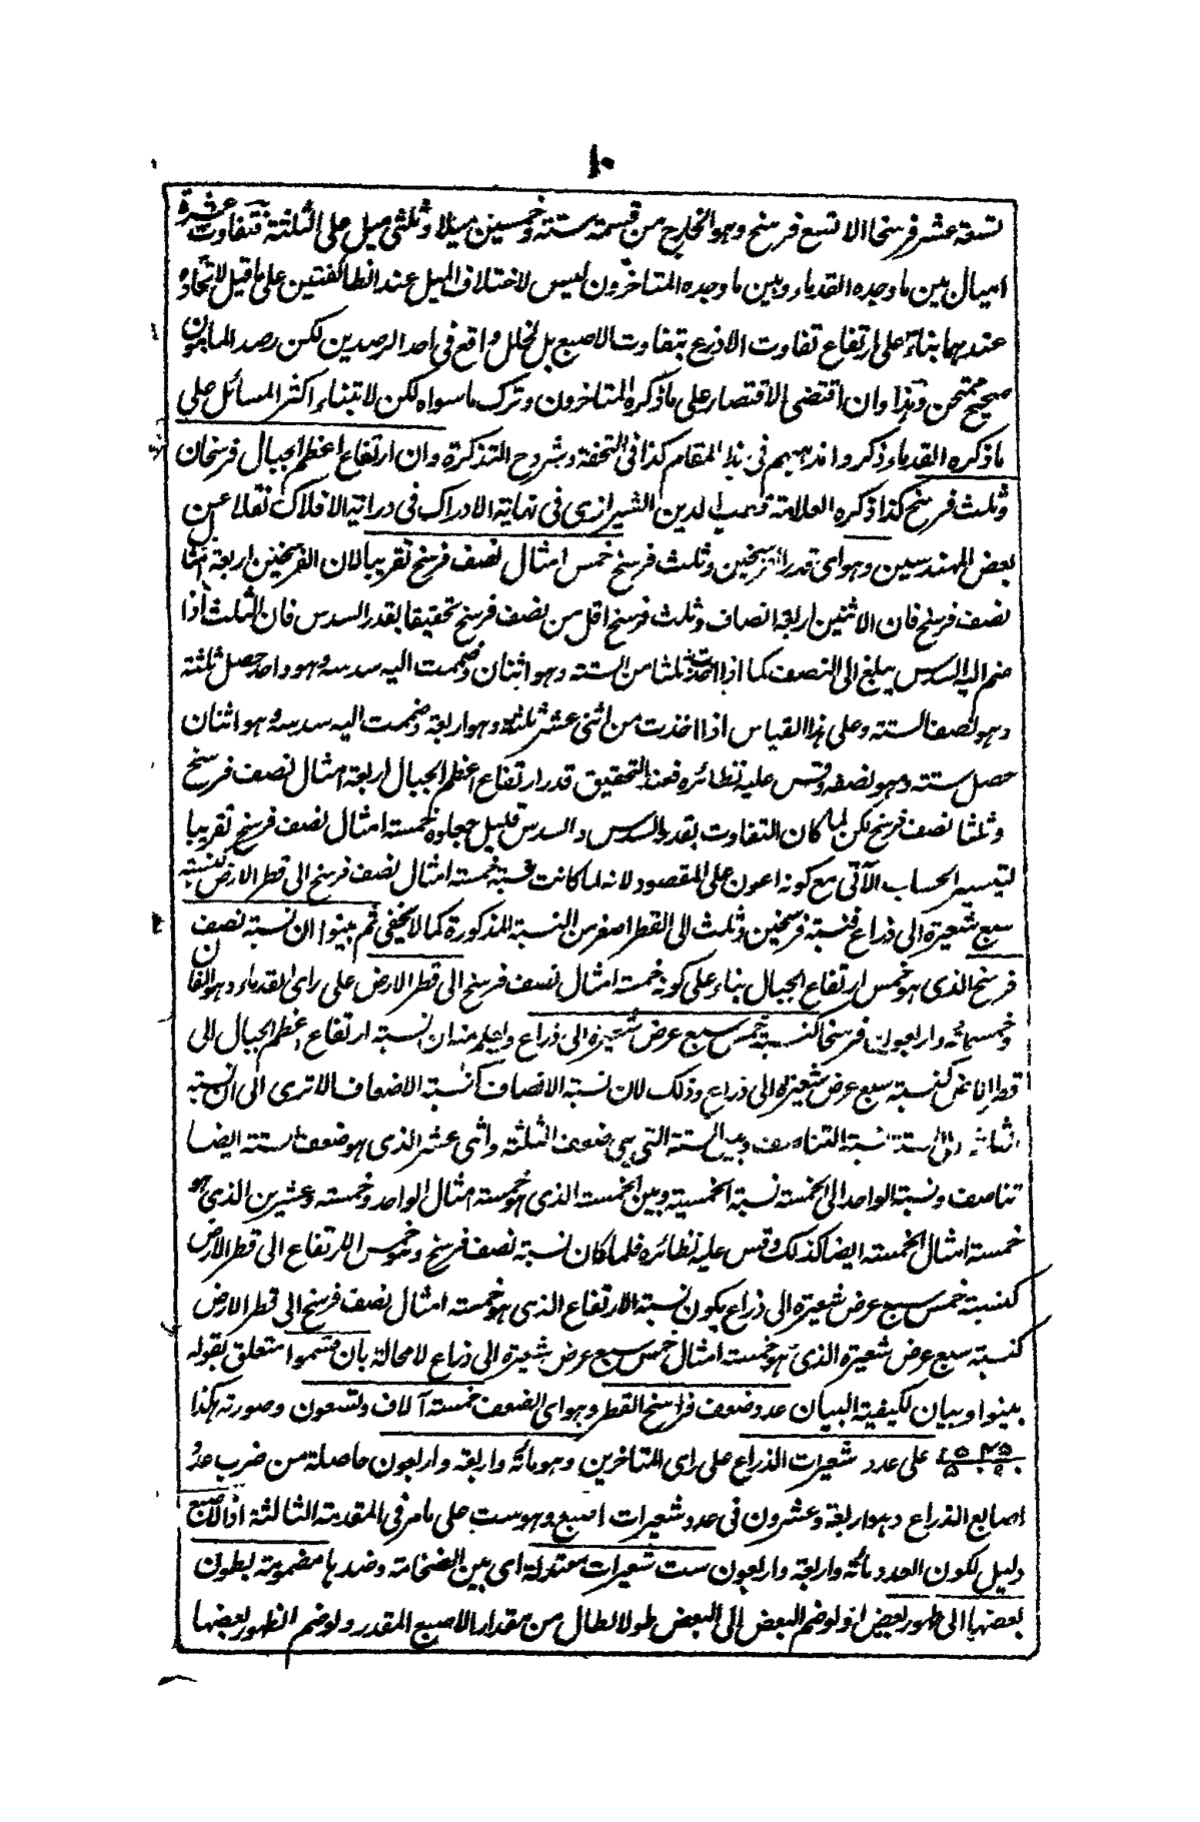 ١٠
تسعة عشر فرسخا الا تسع فرسخ وهو الخارج من قسمة ستة وخمسين ميلا وثلثى ميل على الثلثة فتفاوت عشرة
اميال بين ما وجده القدماء وبين ما وجده المتاخرون ليس لاختلاف الميل عند الطائفتين على ما قيل لاتحاد
عندهما بناء على ارتفاع تفاوت الاذرع بتفاوت الاصبع بل لخلل واقع فى احد الرصدين لكن رصد المامون
صحيح ممتحن وهذا وان اقتضى الاقتصار على ما ذكره المتاخرون وترك ما سواه لكن لابتناء اكثر المسائل على
ما ذكره القدماء ذكروا مذهبهم فى هذا المقام كذا فى التحفة وشروح التذكرة وان ارتفاع اعظم الجبال فرسخان
وثلث فرسخ كذا ذكره العلامة قطب الدين الشيرازى فى نهاية الادراك فى دراية الافلاك نقلا عن
بعض المهندسين وهو اى قدر فرسخين وثلث فرسخ خمس امثال نصف فرسخ تقريبا لان الفرسخين اربعة امثا
نصف فرسخ فان الاثنين اربعة انصاف وثلث فرسخ اقل من نصف فرسخ تحقيقا بقدر السدس فان الثلث اذا
ضم اليه السدس يبلغ الى النصف كما اذا اخذت ثلثا من الستة وهو اثنان وضممت اليه سدسه وهو واحد حصل ثلثة
وهو نصف الستة وعلى هذا القياس اذا اخذت من اثنى عشر ثلثه وهو اربعة وضممت اليه سدسه وهو اثنان
حصل ستة وهو نصفه وقس عليه نظائره فعند التحقيق قدر ارتفاع اعظم الجبال اربعة امثال نصف فرسخ
وثلثا نصف فرسخ لكن لما كان التفاوت بقدر السدس والسدس قليل جعلوه خمسة امثال نصف فرسخ تقريبا
لتيسير الحساب الآتى مع كونه اعون على المقصود لانه لما كانت نسبة خمسة امثال نصف فرسخ الى قطر الارض كنسبة
سبع شعيرة الى ذراع فنسبة فرسخين وثلث الى القطر اصغر من النسبة المذكورة كما لا يخفى ثم بينوا ان نسبة نصف
فرسخ الذى هو خمس ارتفاع الجبال بناء على كونه خمسة امثال نصف فرسخ الى قطر الارض على راى القدماء وهو الفان
وخمسمائة واربعون فرسخا كنسبة خمس سبع عرض شعيرة الى ذراع وليعلم منه ان نسبة ارتفاع اعظم الجبال الى
قطر كنسبة سبع عرض شعيرة الى ذراع وذلك لان نسبة الانصاف كنسبة الاضعاف الا ترى الى ان نسبة
الثلثة الى الستة نسبة التناصف وبين الستة التى هى ضعف الثلثة واثنى عشر الذى هو ضعف الستة ايضا
تناصف ونسبة الواحد الى الخمسة نسبة الخمسية وبين الخمسة الذى هو خمسة امثال الواحد وخمسة وعشرين الذى هو
خمسة امثال الخمسة ايضا كذلك وقس عليه نظائره فلما كان نسبة نصف فرسخ وهو خمس الارتفاع الى قطر الارض
كنسبة خمس سبع عرض شعيرة الى ذراع يكون نسبة الارتفاع الذى هو خمسة امثال نصف فرسخ الى قطر الارض
كنسبة سبع عرض شعيرة الذى هو خمسة امثال خمس سبع عرض شعيرة الى ذراع لا محالة بان قسموا متعلق بقوله
بينوا وبيان لكيفية البيان عدد ضعف فراسخ القطر وهو اى الضعف خمسة آلاف وتسعون وصورته هكذا
على عدد شعيرات الذراع على راى المتاخرين وهو مائة واربعة واربعون حاصلة من ضرب عدد
اصابع الذراع وهو اربعة وعشرون فى عدد شعيرات اصبع وهو ست على ما مر فى المقدمة الثالثة اذ الاصبع
دليل لكون العدد مائة واربعة واربعون ست شعيرات معتدلة اى بين الضخامة وضدها مضمومة بطون
بعضها الى ظهور بعض اذ لو ضم البعض الى البعض طولا لطال من مقدار الاصبع المقدر ولو ضم الظهور بعضها